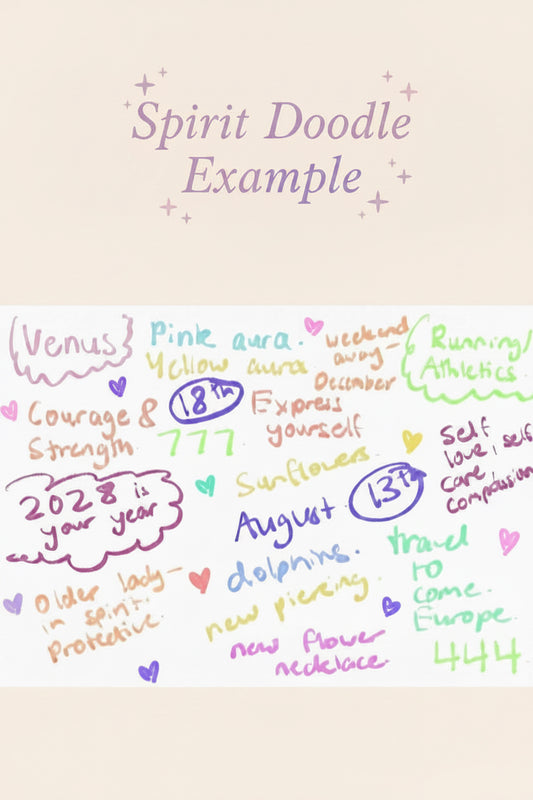 Spirit Doodle
Example
Venus
Pink aura.
Yellow aura
weekend
away -
December
Running/
Athletics
18th
Courage &
Strength
777
Express
yourself
Self
love, self
care,
compassion
Sunflowers.
13th
2028 is
your year
August
dolphins.
travel
to
come.
Europe
444
Older lady -
in spirit.
Protective.
new piercing.
new flower
necklace.